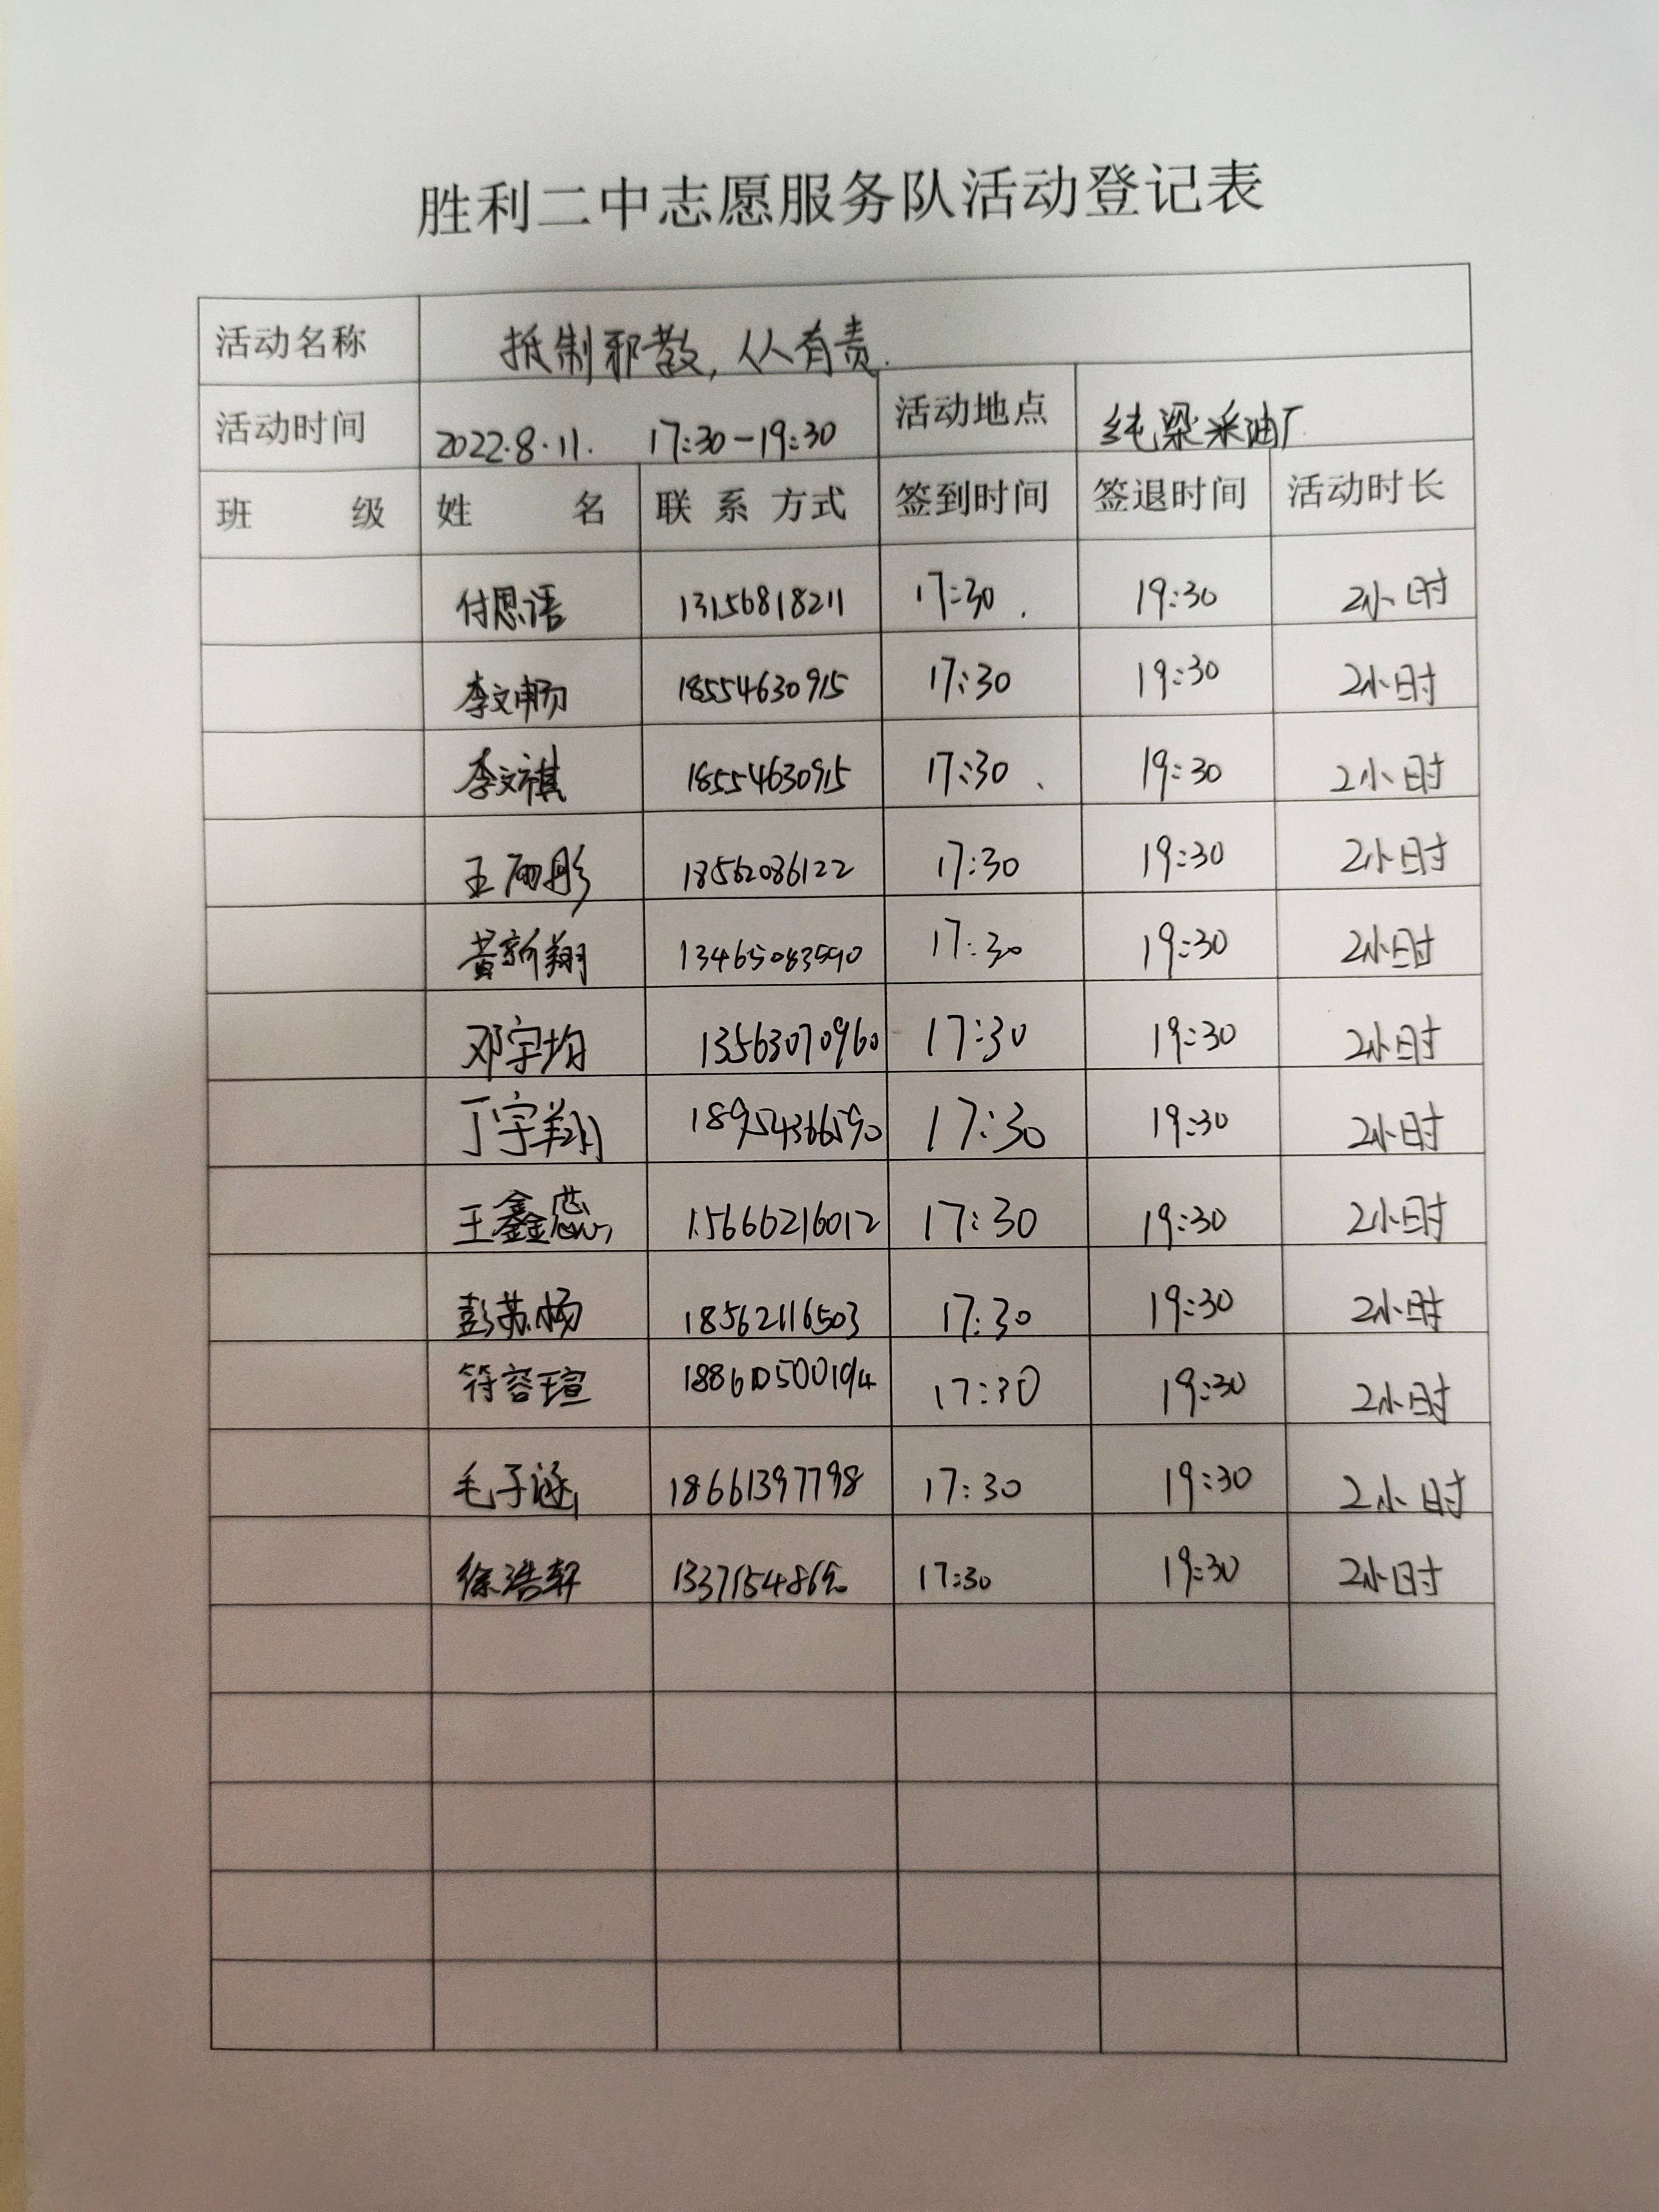 胜利二中志愿服务队活动登记表
活动名称 抵制邪教,人人有责.
活动时间 2022.8.11. 17:30-19:30 活动地点 纯梁采油厂
班级 姓名 联系方式 签到时间 签退时间 活动时长
付思语 13156818211 17:30 19:30 2小时
李文畅 18554630915 17:30 19:30 2小时
李文祺 18554630915 17:30 19:30 2小时
王雨彤 18562086122 17:30 19:30 2小时
黄新翔 13465083590 17:30 19:30 2小时
邓宇均 13563070960 17:30 19:30 2小时
丁宇翔 18954366590 17:30 19:30 2小时
王鑫蕊 15666216012 17:30 19:30 2小时
彭苏杨 18562116503 17:30 19:30 2小时
符容瑄 17:30 19:30 2小时
毛子涵 18661397798 17:30 19:30 2小时
徐浩轩 17:30 19:30 2小时